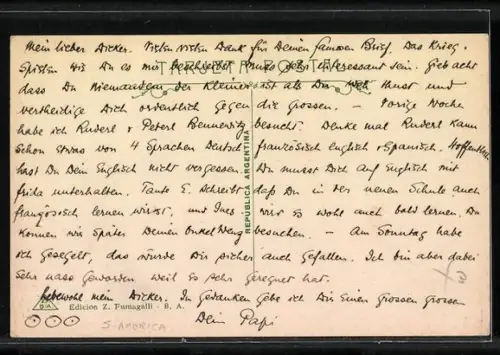 Mein lieber Dicker. Vielen vielen Dank für Deinen famosen Brief. Das Krieg-
TARJETA POSTAL
Spielen wie Du es mir beschreibst muss sehr interessant sein. Gib acht
dass Du niemandem der kleiner ist als Du weh thust und
vertheidige Dich ordentlich gegen die Grossen. — Vorige Woche
habe ich Ruderl + Peterl Bennewitz besucht. Denke mal Ruderl kann
schon etwas von 4 Sprachen Deutsch französisch englisch + Spanisch. Hoffentlich
hast Du Dein Englisch nicht vergessen. Du musst Dich auf Englisch mit
Frida unterhalten. Tante E. schreibt daß Du in der neuen Schule auch
französisch lernen wirst, und Ines wir es wohl auch bald lernen. Du
können wir später Deinen Onkel besuchen. — Am Sonntag habe
ich gesegelt, das würde Dir sicher auch gefallen. Ich bin aber dabei
sehr nass geworden weil es sehr geregnet hat.
Lebewohl mein Dicker. In Gedanken gebe ich Dir einen grossen grossen
Dein Papi
REPÚBLICA ARGENTINA
Edicion Z. Fumagalli - B. A.
S. AMERICA